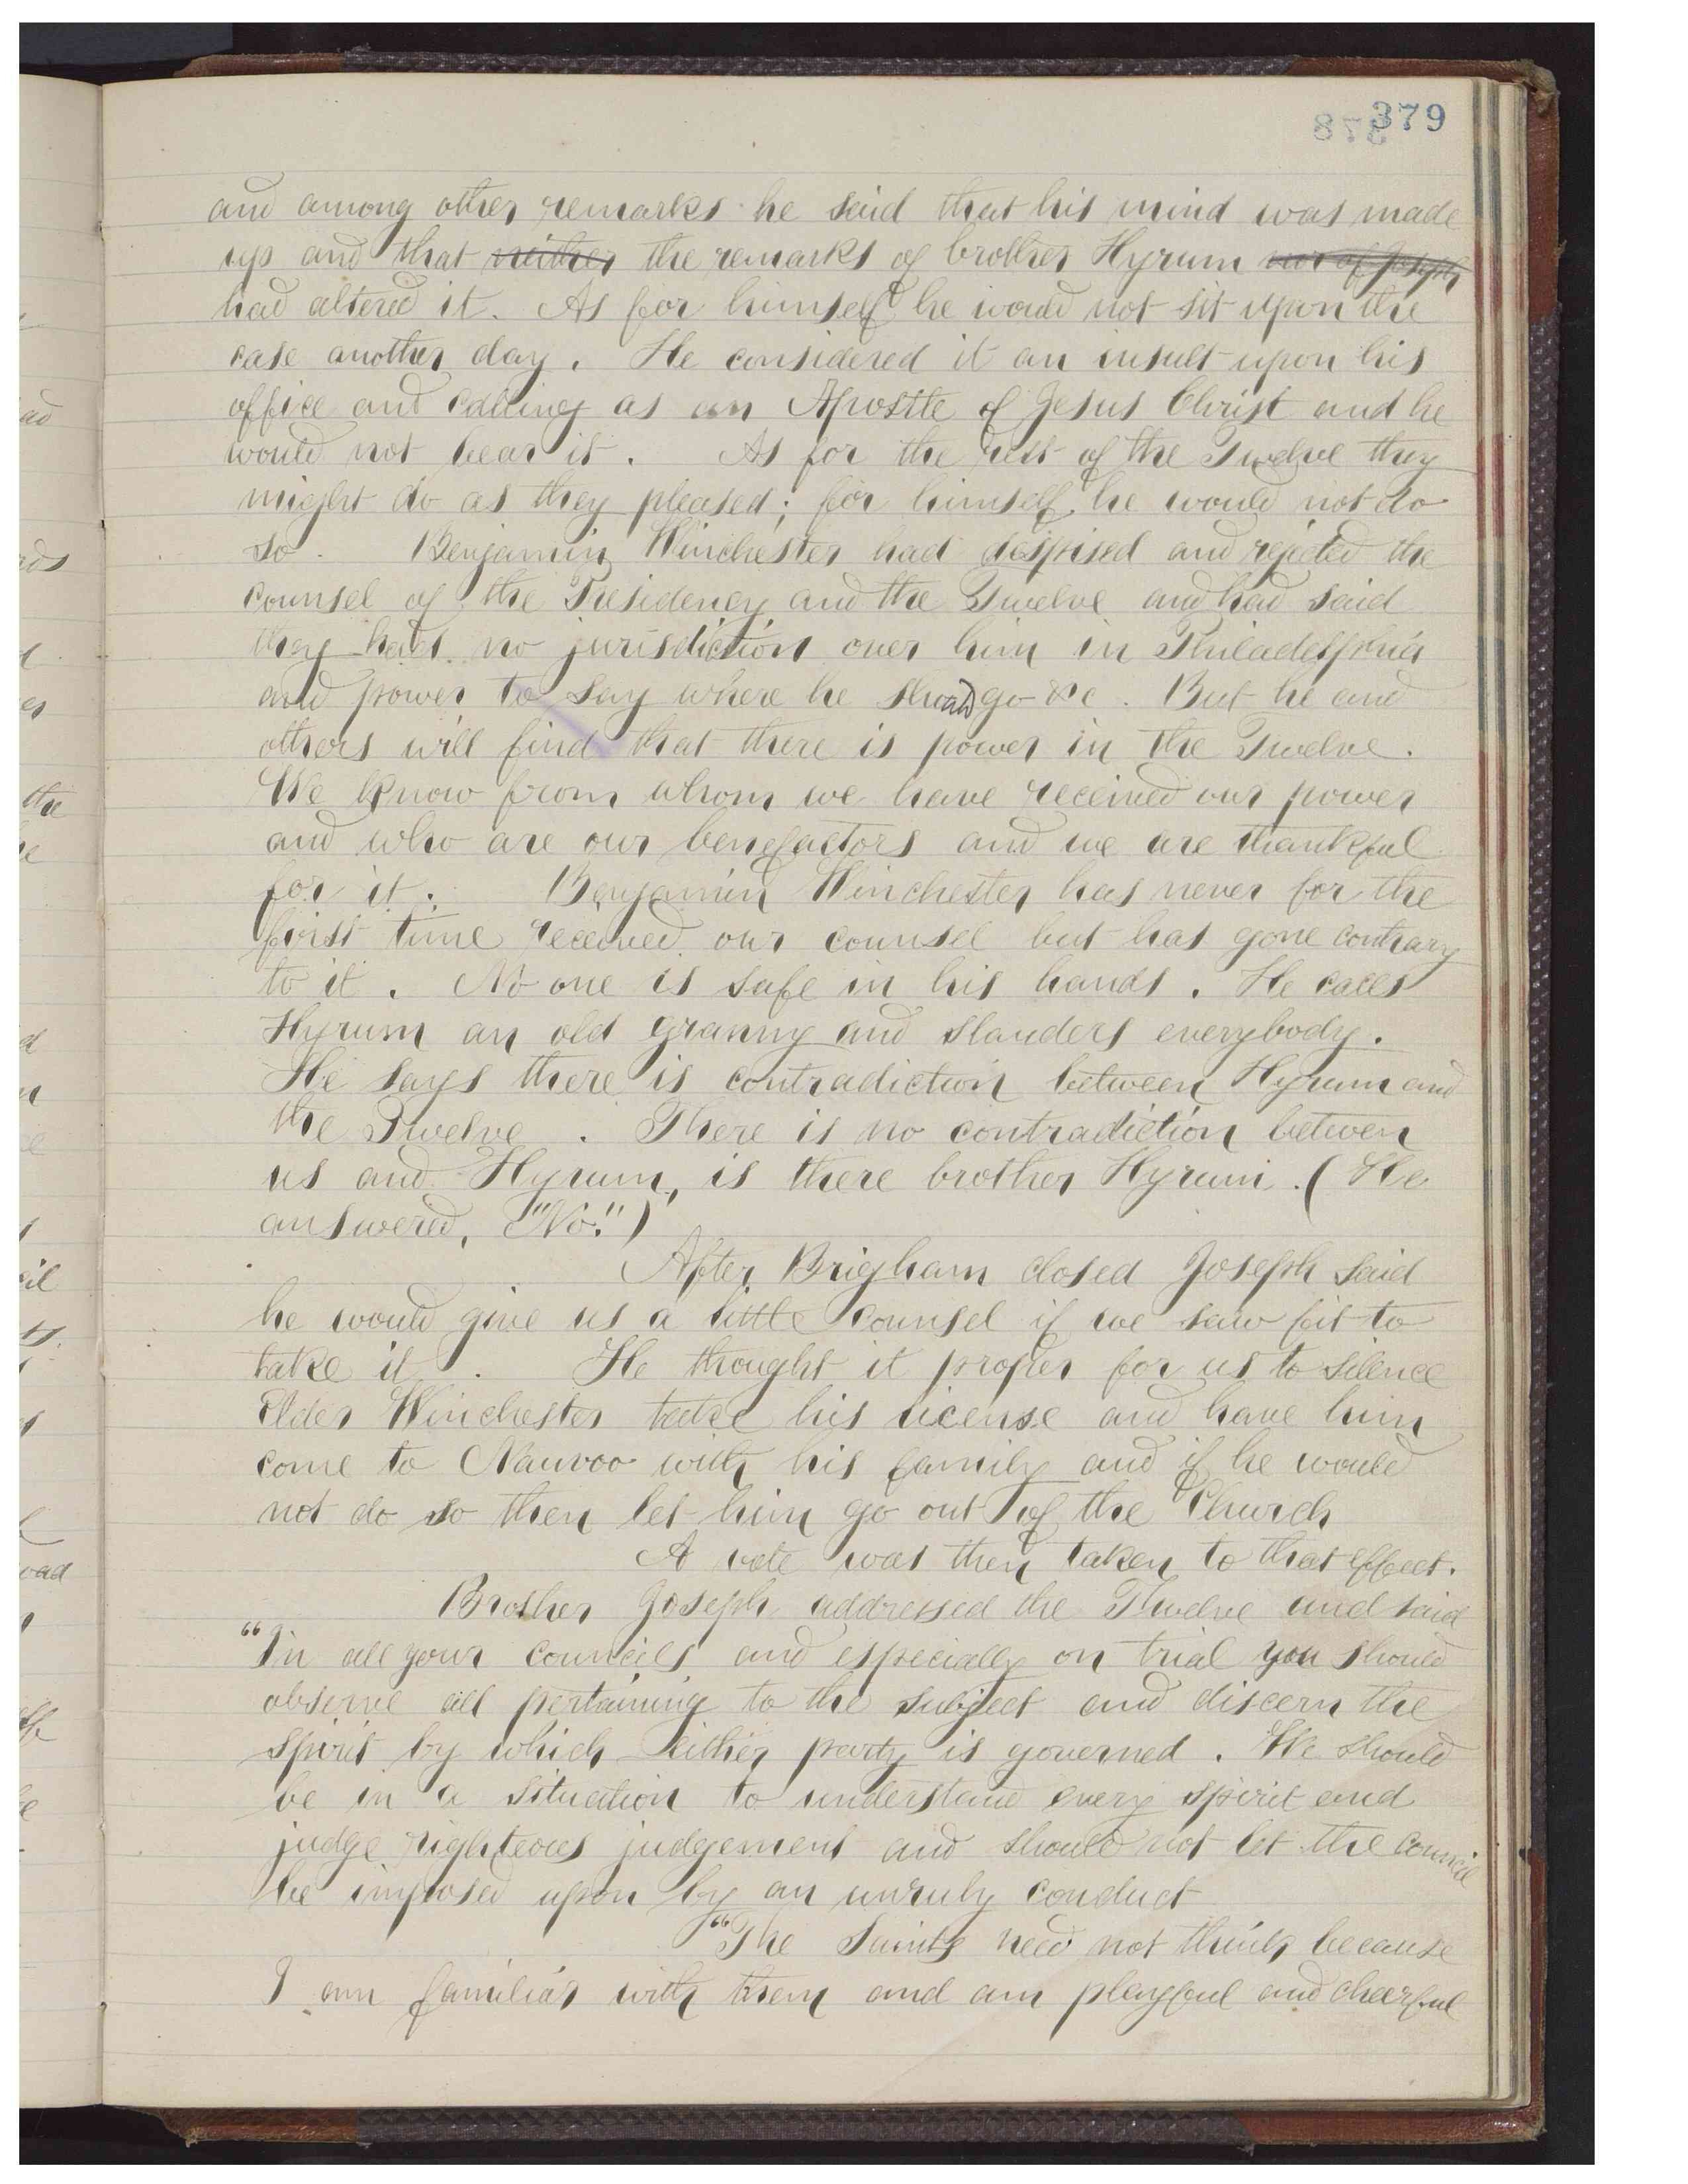 379
and among other remarks he said that his mind was made
up and that neither the remarks of brother Hyrum nor of Joseph
had altered it. As for himself he would not sit upon the
case another day. He considered it an insult upon his
office and calling as an Apostle of Jesus Christ and he
would not bear it. As for the rest of the Twelve they
might do as they pleased; for himself he would not do
so. Benjamin Winchester had despised and rejected the
counsel of the Presidency and the Twelve and had said
they had no jurisdiction over him in Philadelphia
and power to say where he should go &c. But he and
others will find that there is power in the Twelve.
We know from whom we have received our power
and who are our benefactors and we are thankful
for it. Benjamin Winchester has never for the
first time received our counsel but has gone contrary
to it. No one is safe in his hands. He calls
Hyrum an old granny and slanders everybody.
He says there is contradiction between Hyrum and
the Twelve. There is no contradiction between
us and Hyrum, is there brother Hyrum. (He
answered, "No.")
After Brigham closed Joseph said
he would give us a little counsel if we saw fit to
take it. He thought it proper for us to silence
Elder Winchester take his license and have him
come to Nauvoo with his family and if he would
not do so then let him go out of the Church
A vote was then taken to that effect.
Brother Joseph addressed the Twelve and said
"In all your councils and especially on trial you should
observe all pertaining to the subject and discern the
spirit by which either party is governed. We should
be in a situation to understand every spirit and
judge righteous judgement and should not let the council
be imposed upon by an unruly conduct
"The Saints need not think because
I am familiar with them and am playful and cheerful